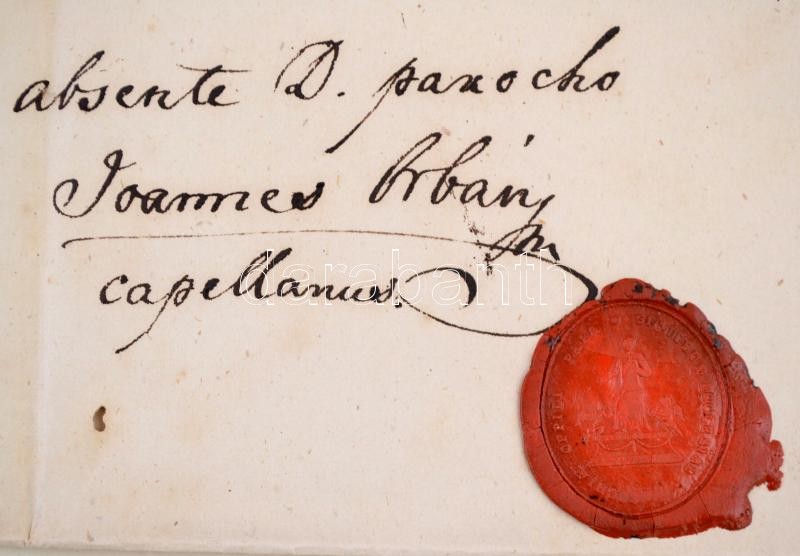 absente D. parocho
Joannes Orbán
m
capellanus.
darabanth